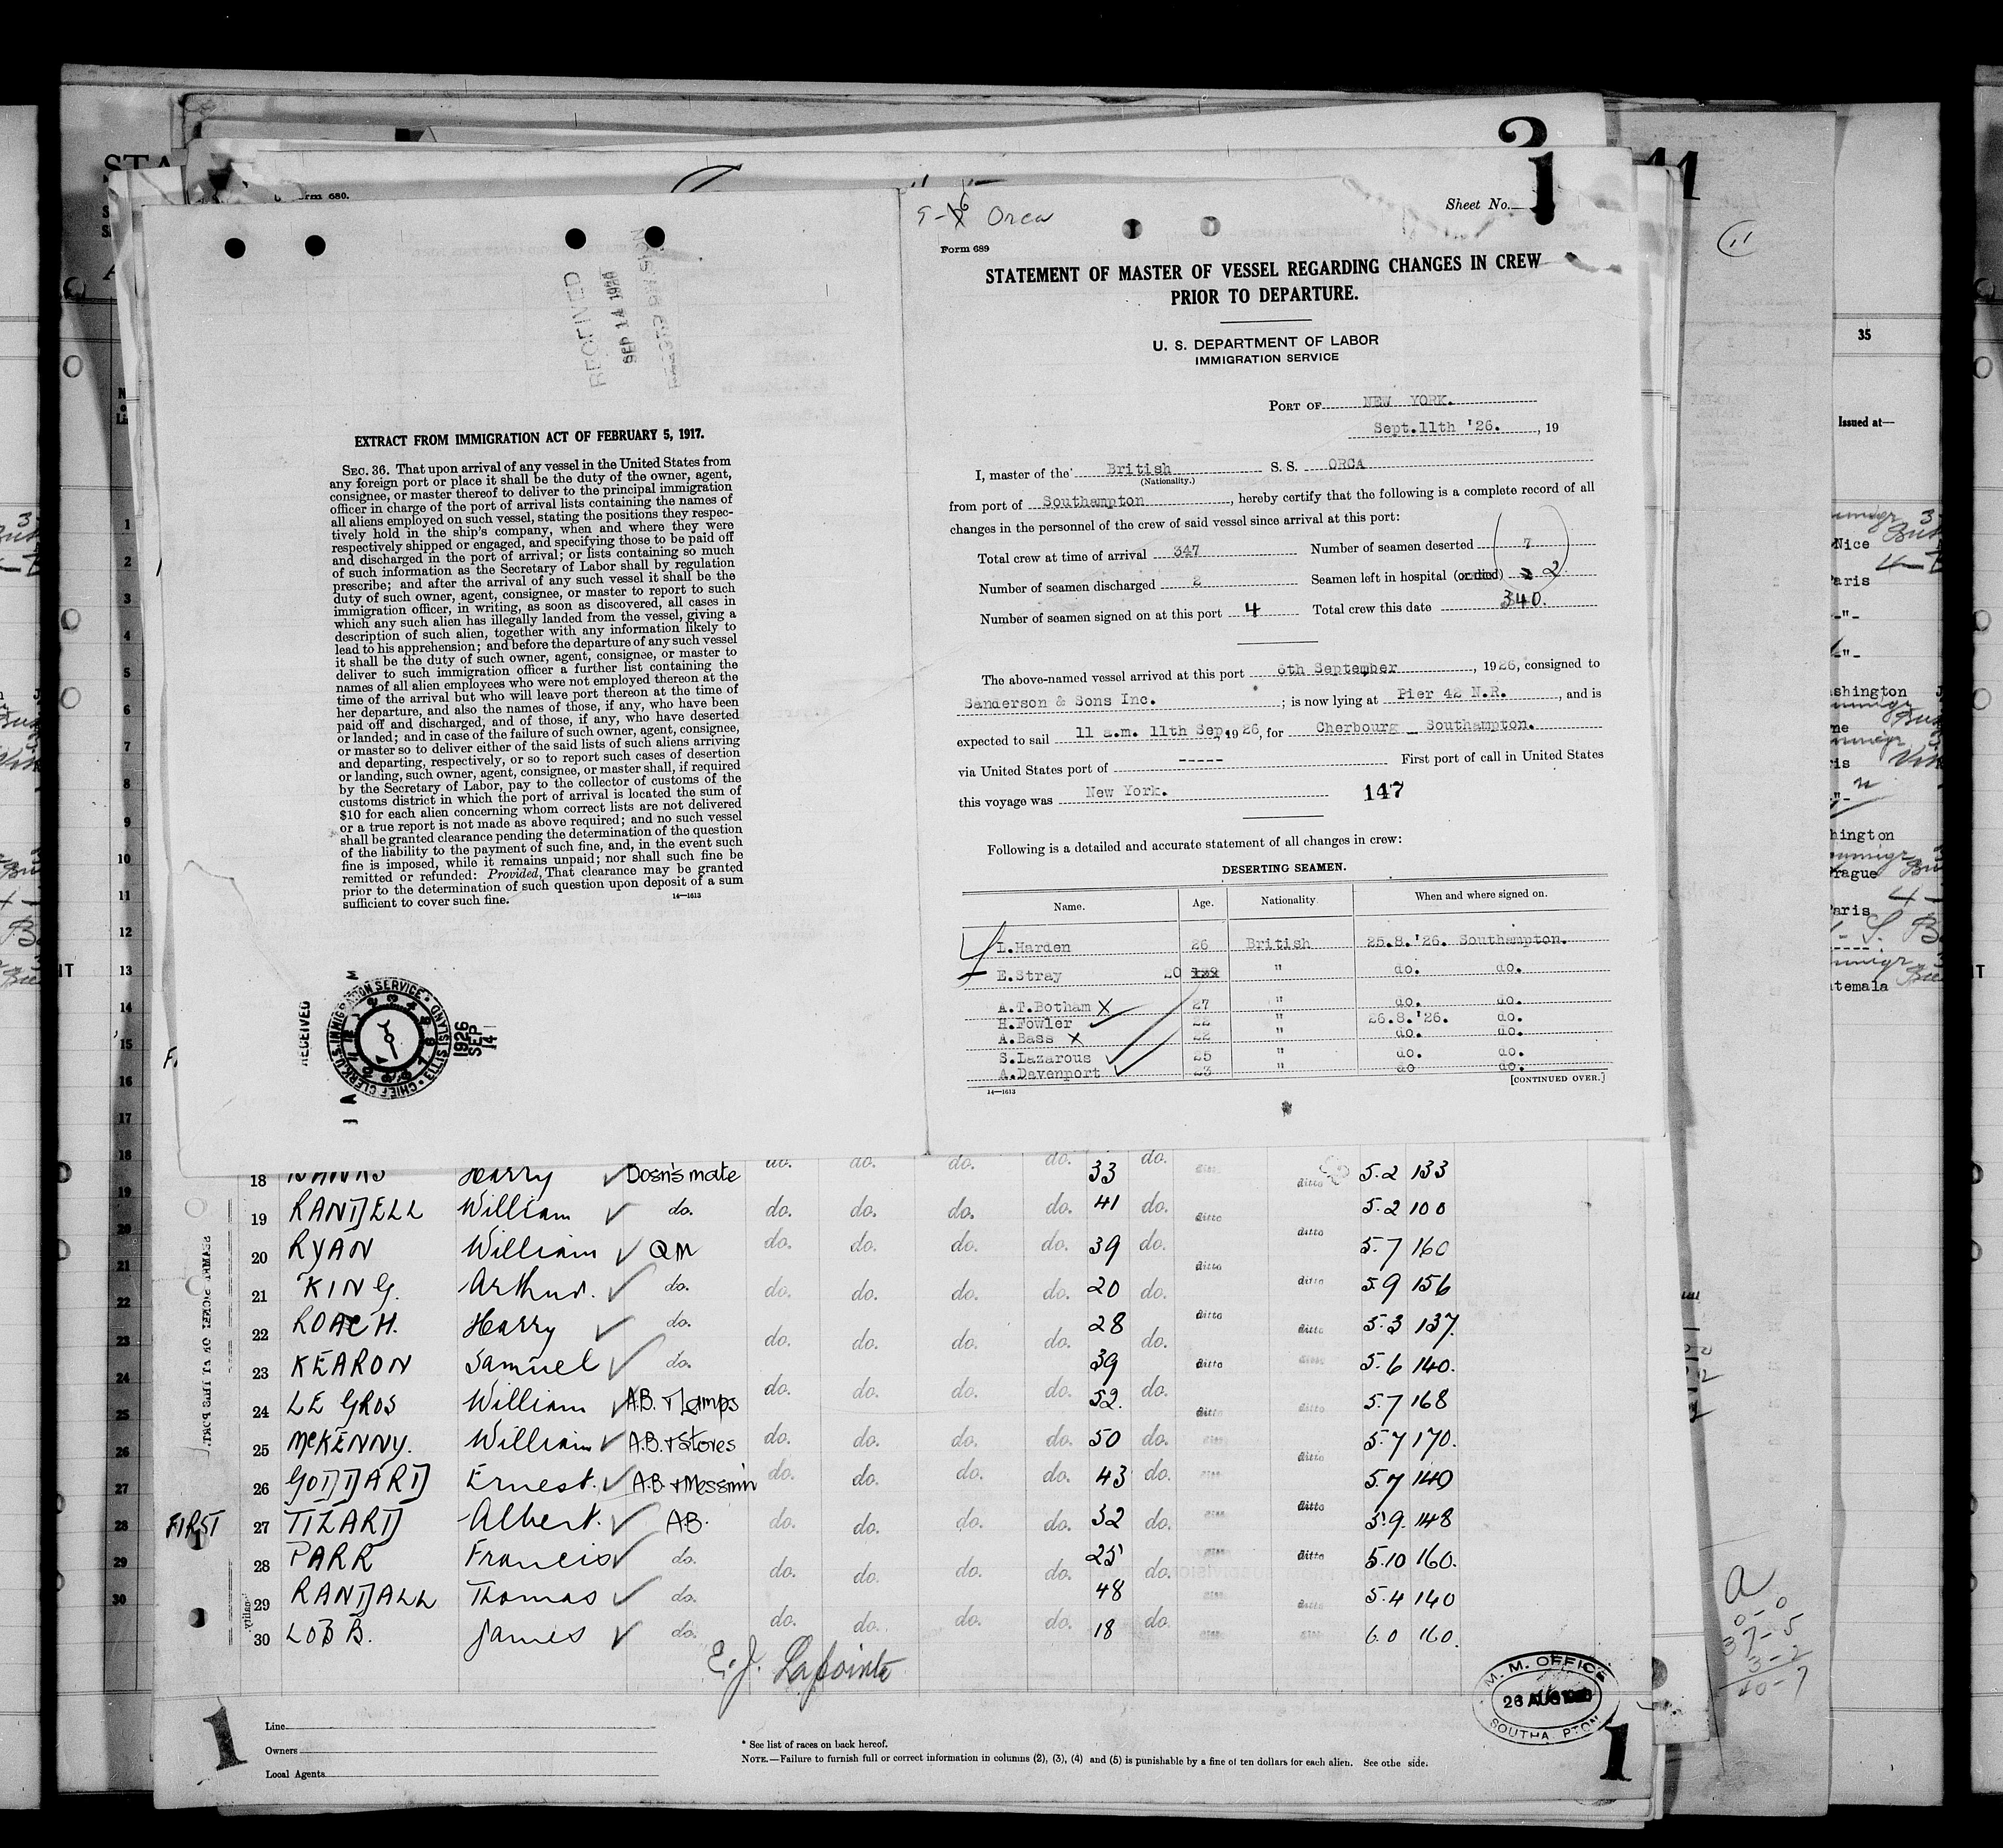 Form 680.
RECEIVED
SEP 14 1926
EXTRACT FROM IMMIGRATION ACT OF FEBRUARY 5, 1917.
SEC. 36. That upon arrival of any vessel in the United States from
any foreign port or place it shall be the duty of the owner, agent,
consignee, or master thereof to deliver to the principal immigration
officer in charge of the port of arrival lists containing the names of
all aliens employed on such vessel, stating the positions they respec-
tively hold in the ship's company, when and where they were
respectively shipped or engaged, and specifying those to be paid off
and discharged in the port of arrival; or lists containing so much
of such information as the Secretary of Labor shall by regulation
prescribe; and after the arrival of any such vessel it shall be the
duty of such owner, agent, consignee, or master to report to such
immigration officer, in writing, as soon as discovered, all cases in
which any such alien has illegally landed from the vessel, giving a
description of such alien, together with any information likely to
lead to his apprehension; and before the departure of any such vessel
it shall be the duty of such owner, agent, consignee, or master to
deliver to such immigration officer a further list containing the
names of all alien employees who were not employed thereon at the
time of the arrival but who will leave port thereon at the time of
her departure, and also the names of those, if any, who have been
paid off and discharged, and of those, if any, who have deserted
or landed; and in case of the failure of such owner, agent, consignee,
or master so to deliver either of the said lists of such aliens arriving
and departing, respectively, or so to report such cases of desertion
or landing, such owner, agent, consignee, or master shall, if required
by the Secretary of Labor, pay to the collector of customs of the
customs district in which the port of arrival is located the sum of
$10 for each alien concerning whom correct lists are not delivered
or a true report is not made as above required; and no such vessel
shall be granted clearance pending the determination of the question
of the liability to the payment of such fine, and, in the event such
fine is imposed, while it remains unpaid; nor shall such fine be
remitted or refunded: Provided, That clearance may be granted
prior to the determination of such question upon deposit of a sum
sufficient to cover such fine.
14—1613
RECEIVED
CHIEF CLERK, U.S. IMMIGRATION SERVICE • ELLIS ISLAND
1926
SEP
14
Orca
Sheet No. 1
Form 689
STATEMENT OF MASTER OF VESSEL REGARDING CHANGES IN CREW
PRIOR TO DEPARTURE.
U. S. DEPARTMENT OF LABOR
IMMIGRATION SERVICE
PORT OF NEW YORK.
Sept.11th '26. , 19
I, master of the British S. S. ORCA
(Nationality.)
from port of Southampton , hereby certify that the following is a complete record of all
changes in the personnel of the crew of said vessel since arrival at this port:
Total crew at time of arrival 347 Number of seamen deserted 7
Number of seamen discharged 2 Seamen left in hospital (or died) 2
Number of seamen signed on at this port 4 Total crew this date 340.
The above-named vessel arrived at this port 6th September , 1926, consigned to
Sanderson & Sons Inc. ; is now lying at Pier 42 N.R. , and is
expected to sail 11 a.m. 11th Sep, 1926, for Cherbourg _ Southampton.
via United States port of ----- First port of call in United States
this voyage was New York. 147
Following is a detailed and accurate statement of all changes in crew:
DESERTING SEAMEN.
Name. Age. Nationality. When and where signed on.
L.Harden 26 British 25.8.'26. Southampton.
E.Stray 20 " do. do.
A.T.Botham X 27 " do. do.
H.Fowler 22 " 26.8.'26. do.
A.Bass X 22 " do. do.
S.Lazarous 25 " do. do.
A.Davenport 23 " do do.
[CONTINUED OVER.]
14—1613
18 Harry Bosn's mate do. do. do. do. 33 do. ditto 5.2 133
19 RANDELL William do. do. do. do. do. 41 do. ditto 5.2 100
20 RYAN William QM do. do. do. do. 39 do. ditto 5.7 160
21 KING. Arthur. do. do. do. do. do. 20 do. ditto ditto 5.9 156
22 ROACH. Harry do. do. do. do. do. 28 do. ditto ditto 5.3 137.
23 KEARON Samuel do. do. do. do. do. 39 do. ditto 5.6 140.
24 LE GROS William A.B. + Lamps do. do. do. do. 52. do. ditto ditto 5.7 168
25 McKENNY. William A.B. + Stores do. do. do. do. 50 do. ditto 5.7 170.
26 GODDARD Ernest. A.B. + Messmn do. do. do. do. 43 do. 5.7 140
FIRST 27 TIZARD Albert. AB. do. do. do. do. 32 do. ditto 5.9. 148
28 PARR Francis do. do. do. do. do. 25 do. ditto 5.10 160.
29 RANDALL Thomas do. do. do. do. do. 48 do. 5.4 140
30 LOBB. James do. do. do. do. do. 18 do. 6.0 160.
E. J. Lapointe
M. M. OFFICE
26 AUG 1926
SOUTHAMPTON
Line
Owners
Local Agents
* See list of races on back hereof.
NOTE.—Failure to furnish full or correct information in columns (2), (3), (4) and (5) is punishable by a fine of ten dollars for each alien. See othe side.
1
1
11
35
Issued at—
Nice
Paris
-"-
-"-
shington
hington
Prague
Paris
temala